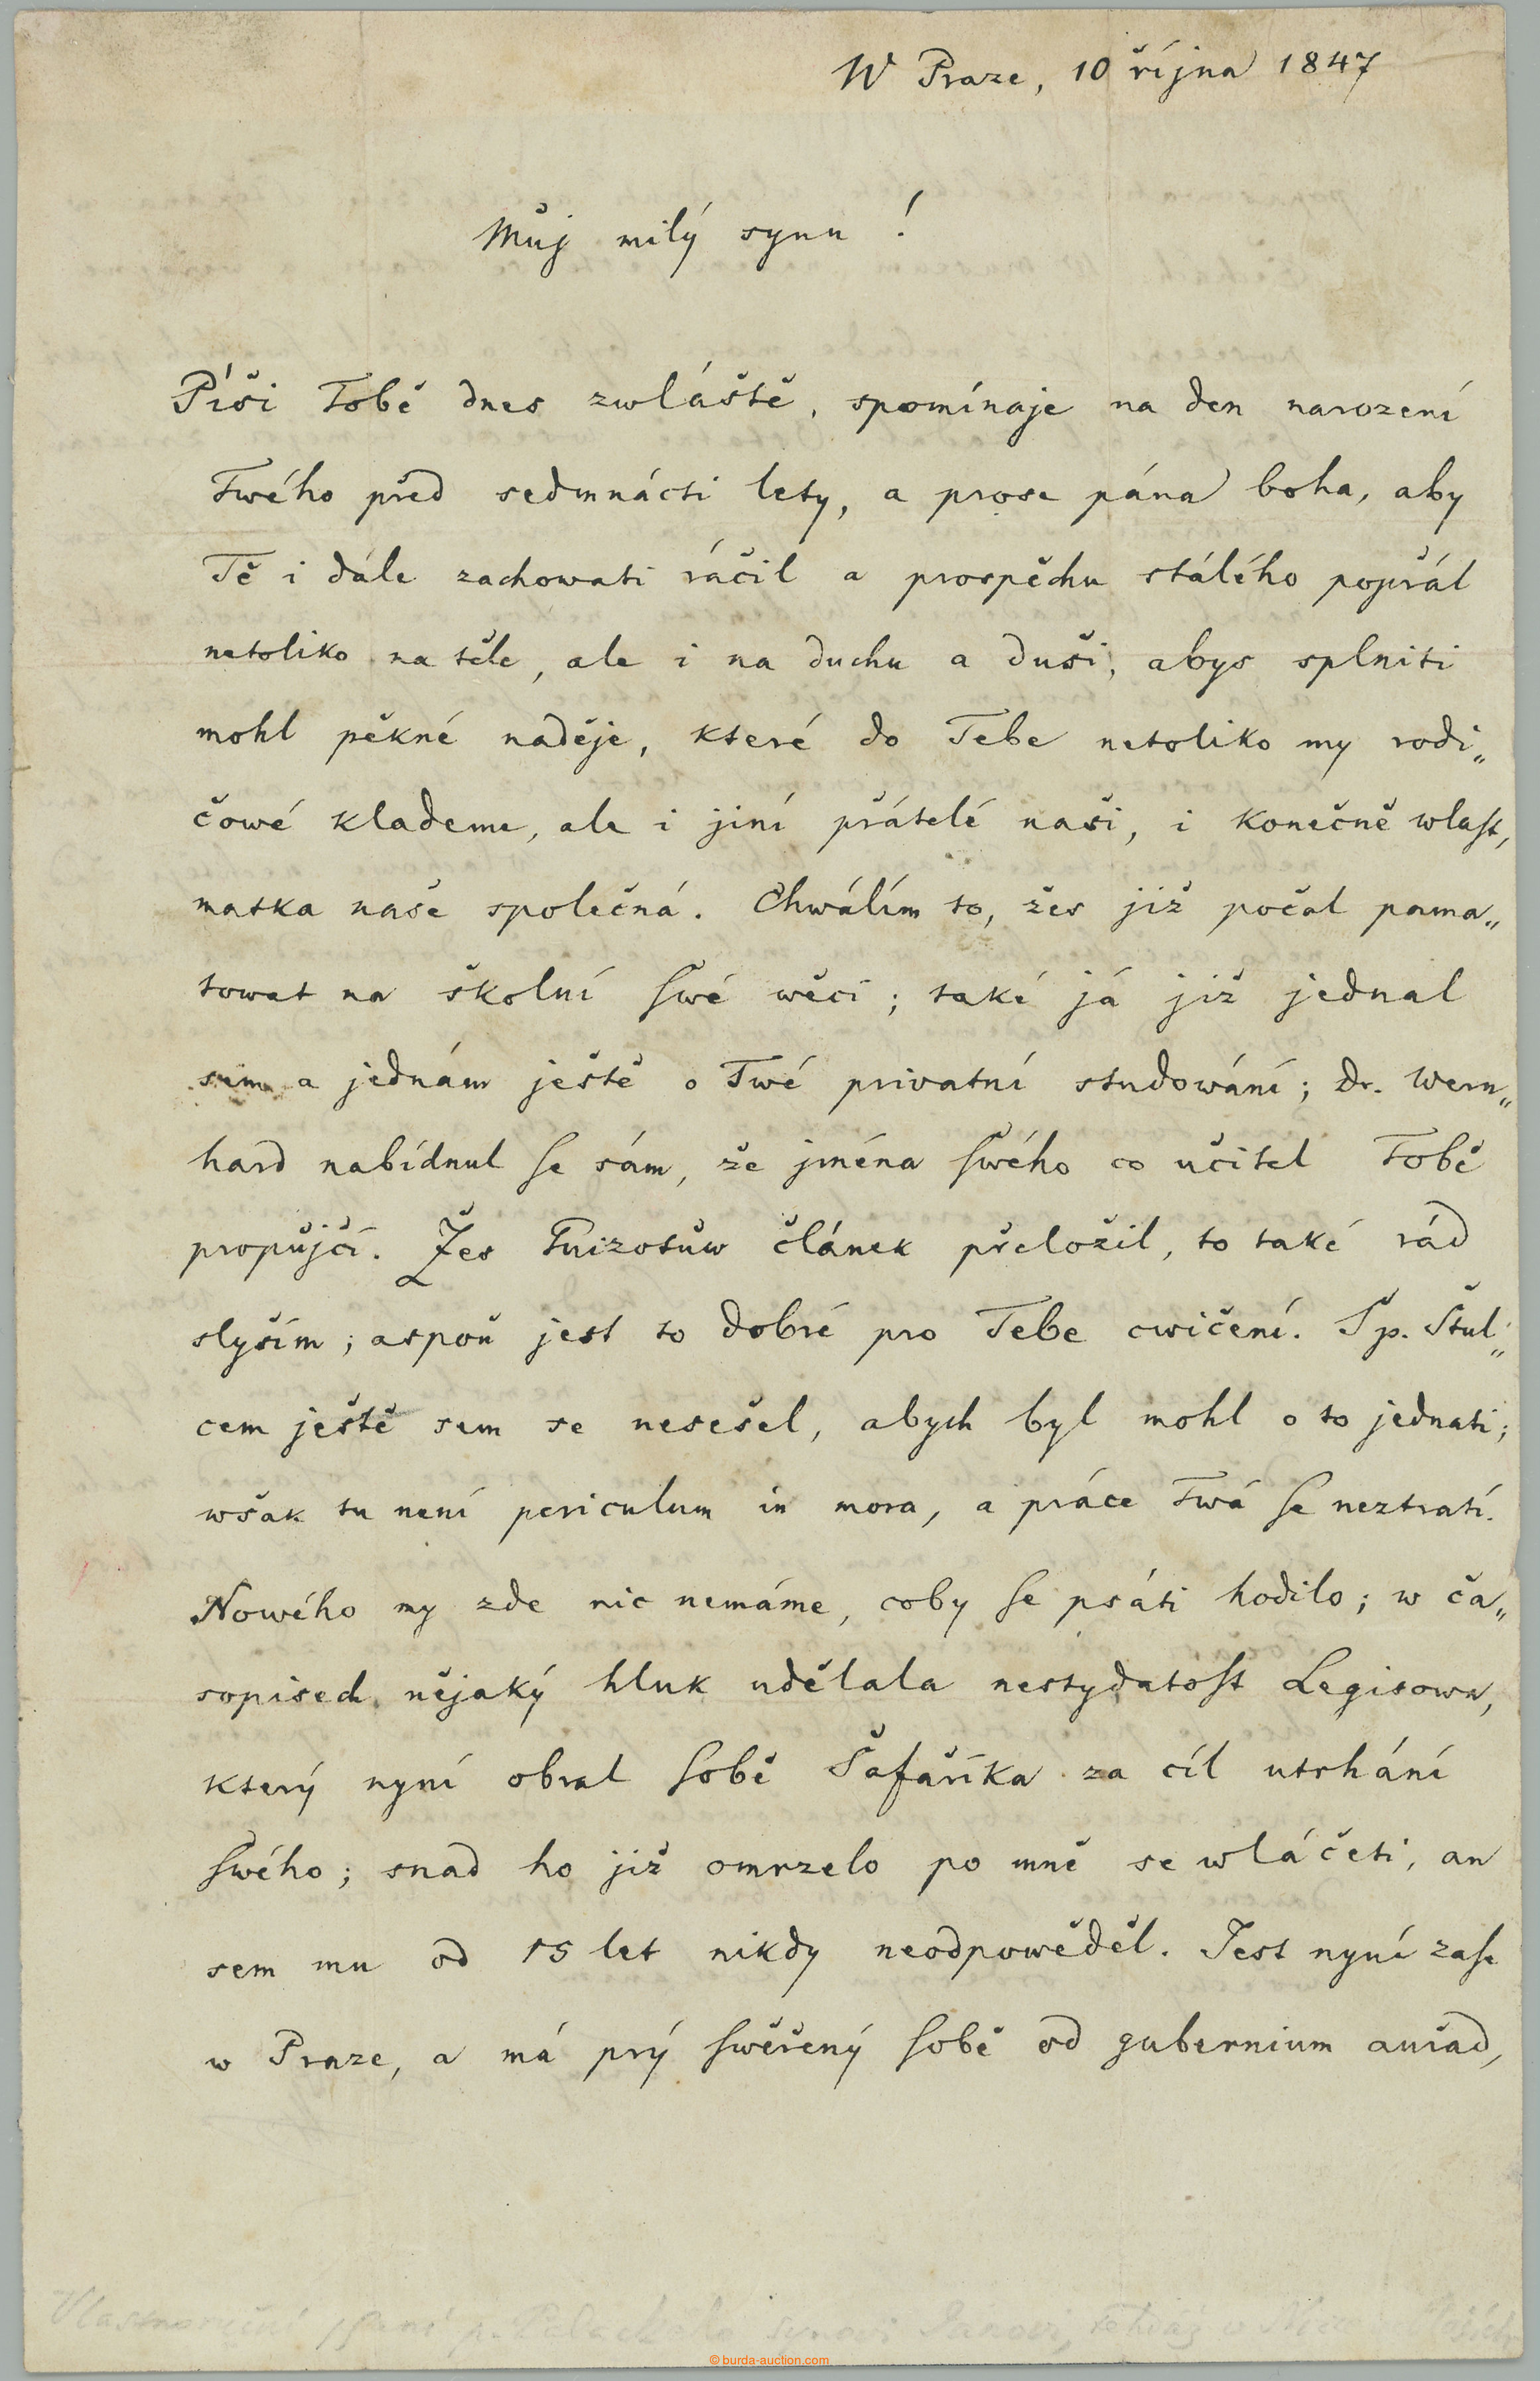 W Praze, 10 října 1847
Můj milý synu!
Píši Tobě dnes zwláště, spomínaje na den narození
Twého před sedmnácti lety, a prose pána boha, aby
Tě i dále zachowati ráčil a prospěchu stálého popřál
netoliko na těle, ale i na duchu a duši, abys splniti
mohl pěkné naděje, které do Tebe netoliko my rodi„
čowé klademe, ale i jiní přátelé naši, i konečně wlaſt,
matka naše společná. Chwálím to, žes již počal pama„
towat na školní ſwé wěci; také já již jednal
sem a jednám ještě o Twé privatní studowání; Dr. Wern„
hard nabídnul ſe sám, že jména ſwého co učitel Tobě
propůjčí. Žes Guizotůw článek přeložil, to také rád
slyším; aspoň jest to dobré pro Tebe cwičení. S p. Štul„
cem ještě sem se nesešel, abych byl mohl o to jednati;
wšak tu není periculum in mora, a práce Twá ſe neztratí.
Nowého my zde nic nemáme, coby ſe psáti hodilo; w ča„
sopisech nějaký hluk udělala nestydatoſt Legisowa,
který nyní obral ſobě Šafaříka za cíl utrhání
ſwého; snad ho již omrzelo po mně se wláčeti, an
sem mu od 15 let nikdy neodpowěděl. Jest nyní zaſe
w Praze, a má prý ſwěřený ſobě od gubernium auřad,
Vlastnoruční psaní p. Palackého synovi Janovi, v
© burda-auction.com